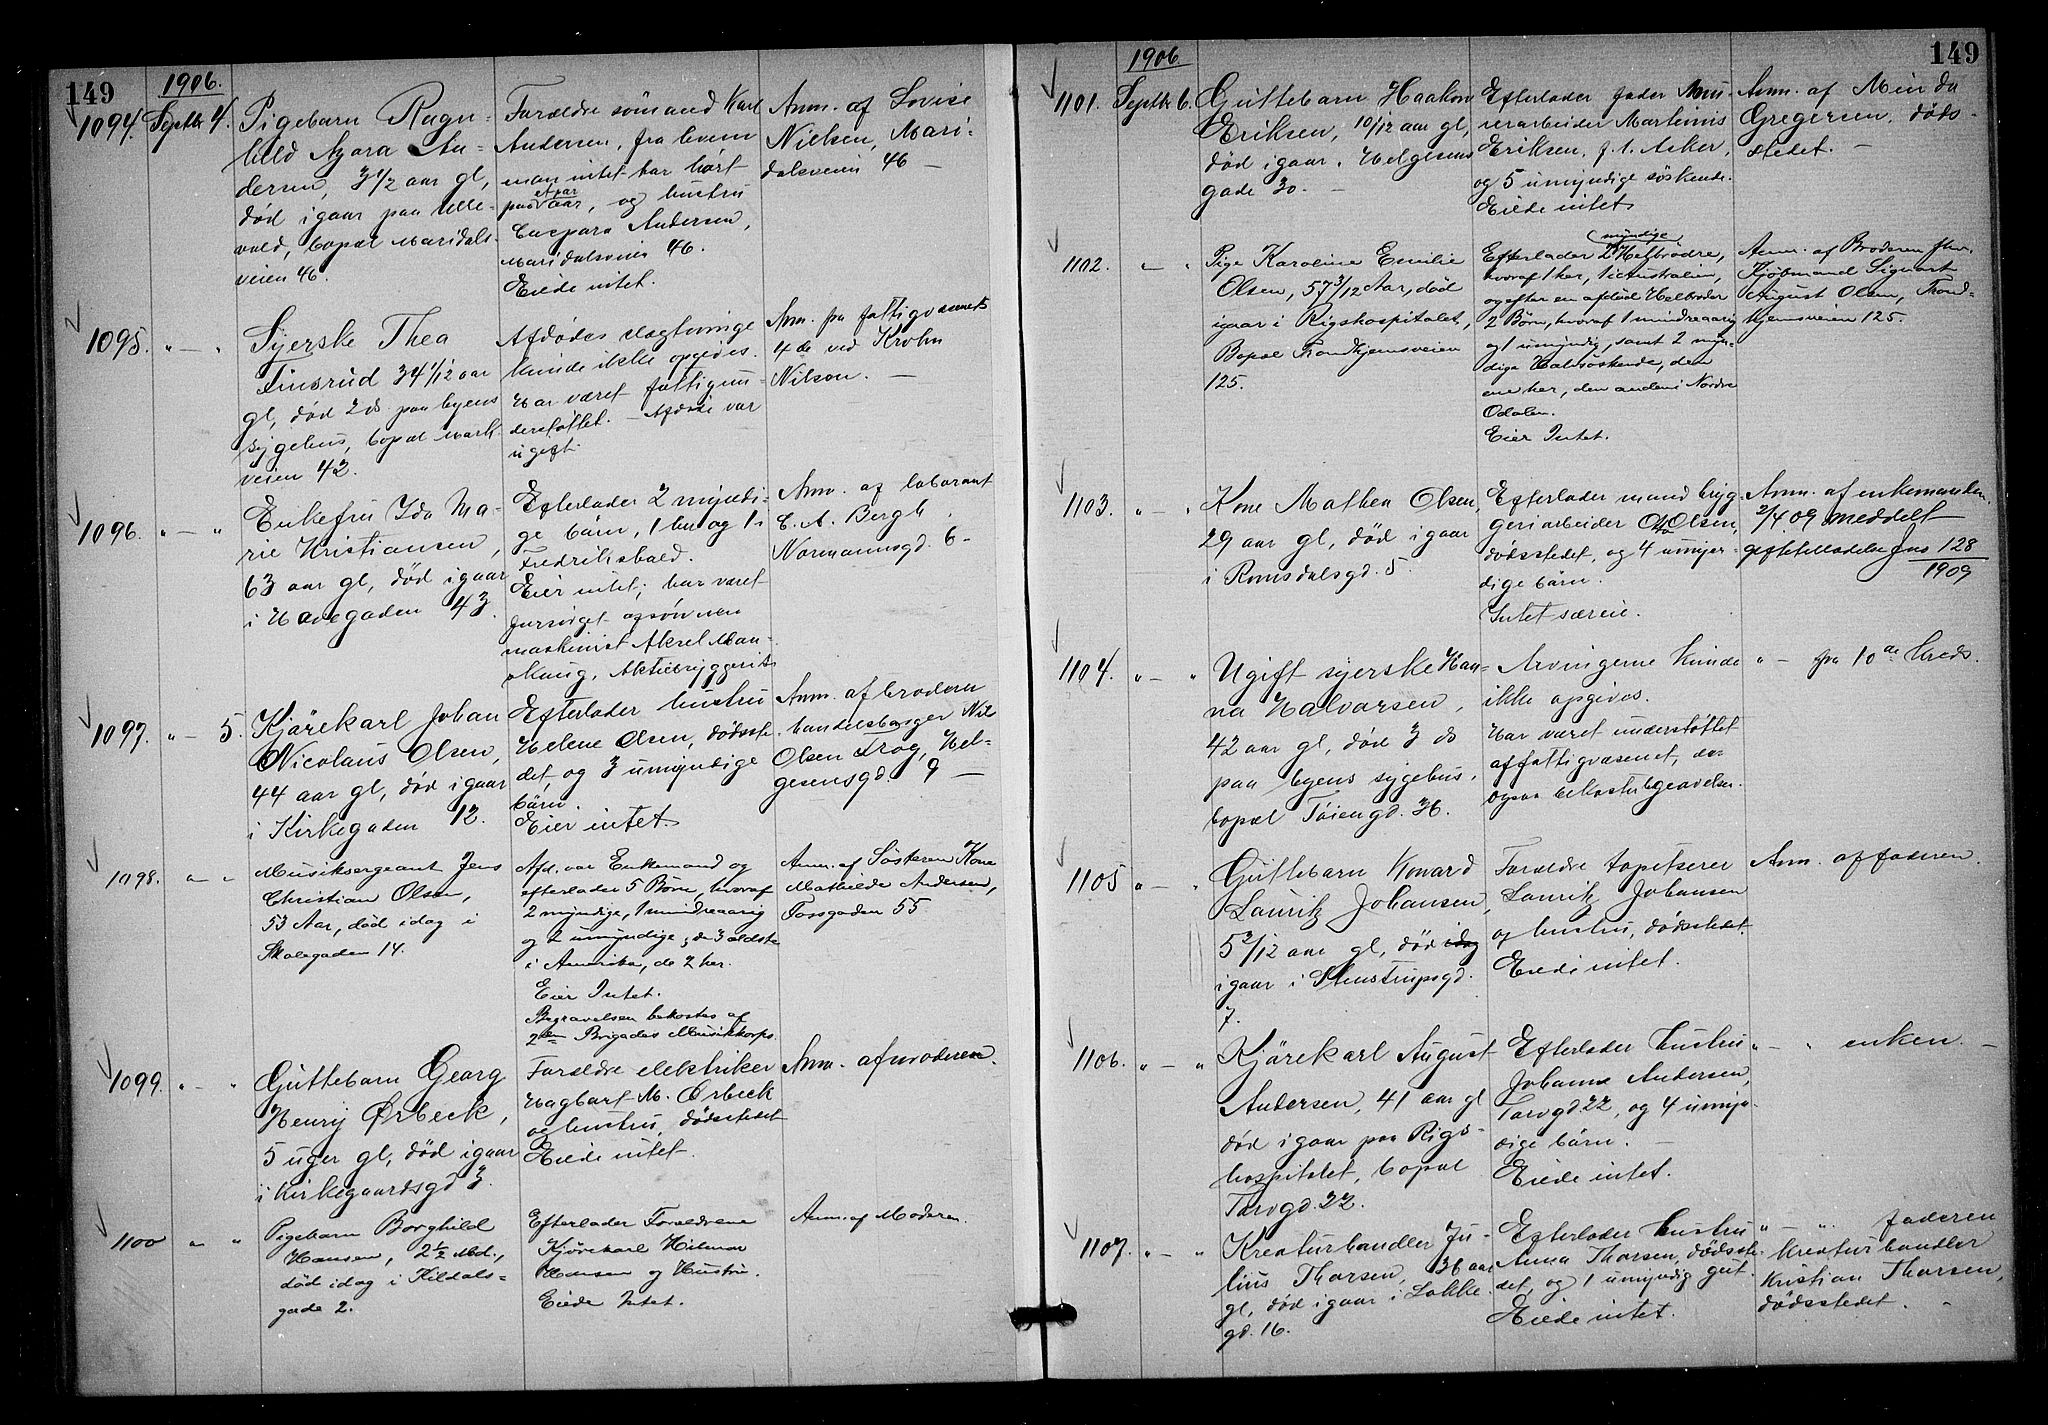 149
1906.
1094. Septbr 4.
Pigebarn Ragn-
hild Azora An-
dersen, 3 1/2 aar gl,
død igaar paa Ulle-
vaal, bopæl Maridals-
veien 46.
Forældre sømand Karl
Andersen, fra hvem
man intet har hørt
paa et par aar, og hustru
Caspara Andersen,
Maridalsveien 46.
Eiede intet.
Anm. af Lovise
Nielsen, Mari-
dalsveien 46 —
1095. " — "
Syerske Thea
Finsrud 34 1/12 aar
gl, død 2 ds paa byens
sygehus, bopæl Mark-
veien 42.
Afdødes slægtninge
kunde ikke opgives.
Har været fattigun-
derstøttet. — Afdøde var
ugift.
Anm. fra fattigvæsenets
4de ved Krohn
Nilson. —
1096. " — "
Enkefru Ida Ma-
rie Kristiansen,
63 aar gl, død igaar
i Havegaden 43.
Efterlader 2 myndi-
ge børn, 1 her og 1 i
Fredrikshald.
Eier intet; har været
forsørget af
maskinist Aksel Man-
skaug, Aktiebryggeriet
Anm. af laborant
C. A. Bergh
Normannsgd. 6 —
1097. " — 5.
Kjørekarl Johan
Nicolaus Olsen,
44 aar gl, død igaar
i Kirkegaden 12.
Efterlader hustru
Helene Olsen, dødsste-
det, og 3 umyndige
børn.
Eier intet.
Anm. af broderen
handelsborger Nils
Olsen Krog, Hel-
gesensgd. 9 —
1098. " — "
Musiksergeant Jens
Christian Olsen,
53 Aar, død idag i
Skolegaden 14.
Afd. var Enkemand og
efterlader 5 Børn, hvoraf
2 myndige, 1 mindreaarig
og 2 umyndige; de 3 ældste
i Amerika, de 2 her.
Eier Intet.
Begravelsen bekostes af
2den Brigades Musikkorps.
Anm. af Søsteren Kone
Mathilde Andersen,
Fossgaden 55
1099. " — "
Guttebarn Georg
Henry Ørbeck,
5 uger gl, død igaar
i Kirkegaardsgd 3.
Forældre elektriker
Hagbart M. Ørbeck
og hustru, dødsstedet
Eiede intet.
Anm. af moderen.
1100 " "
Pigebarn Borghild
Hansen, 2 1/2 Md.,
død idag i Kildals-
gade 2.
Efterlader Forældrene
Kjørekarl Hilmar
Hansen og Hustru.
Eiede Intet.
Anm. af Moderen.
149
1906
1101. Septbr 6.
Guttebarn Haakon
Eriksen, 10/12 aar gl,
død igaar. Helgesens
gade 30. —
Efterlader fader mu-
rerarbeider Martinius
Eriksen, f. t. Asker,
og 5 umyndige søskende.
Eiede intet
Anm. af Minda
Gregersen, døds-
stedet. —
1102. " — "
Pige Karoline Emilie
Olsen, 57 3/12 Aar, død
igaar i Rigshospitalet,
Bopæl Trondhjemsveien
125.
Efterlader 2 myndige Helbrødre,
hvoraf 1 her, 1 i Australien,
og efter en afdød Helbroder
2 Børn, hvoraf 1 mindreaarig
og 1 umyndig, samt 2 myn-
dige Halvsøskende, den
ene her, den anden i Nordre
Odalen.
Eier Intet.
Anm. af Broderen fhv.
Kjøbmand Sigvart
August Olsen, Trond-
hjemsveien 125.
1103. " — "
Kone Mathea Olsen,
29 aar gl, død igaar
i Romsdalsgd. 5
Efterlader mand bryg-
geriarbeider Otto Olsen,
dødsstedet, og 4 umyn-
dige børn.
Intet særeie.
Anm. af enkemanden.
2/4 09 meddelt
giftetilladelse Jns 128
1909
1104. " — "
Ugift syerske Han-
na Halvorsen,
42 aar gl, død 3 ds
paa byens sygehus,
bopæl Tøiengd. 36.
Arvingerne kunde
ikke opgives.
Har været understøttet
af fattigvæsenet, der
ogsaa bekoster begravelsen.
" — fra 10de kreds.
1105 " — "
Guttebarn Konard
Lauritz Johansen,
5 3/12 aar gl, død idag
igaar i Stenstrupsgd.
7.
Forældre tapetserer
Lauritz Johansen
og hustru, dødsstedet.
Eiede intet.
Anm. af faderen.
1106. " — "
Kjørekarl August
Andersen, 41 aar gl
død igaar paa Rigs-
hospitalet, bopæl
Torvgd. 22.
Efterlader hustru
Johanne Andersen,
Torvgd 22, og 4 umyn-
dige børn. —
Eiede intet.
" — " enken. —
1107. " — "
Kreaturhandler Ju-
lius Thorsen, 36 aar
gl, død igaar i Løkke-
gd. 16.
Efterlader hustru
Anna Thorsen, dødsste-
det, og 1 umyndig gut.
Eiede intet.
" — " faderen
kreaturhandler
Kristian Thorsen,
dødsstedet. —